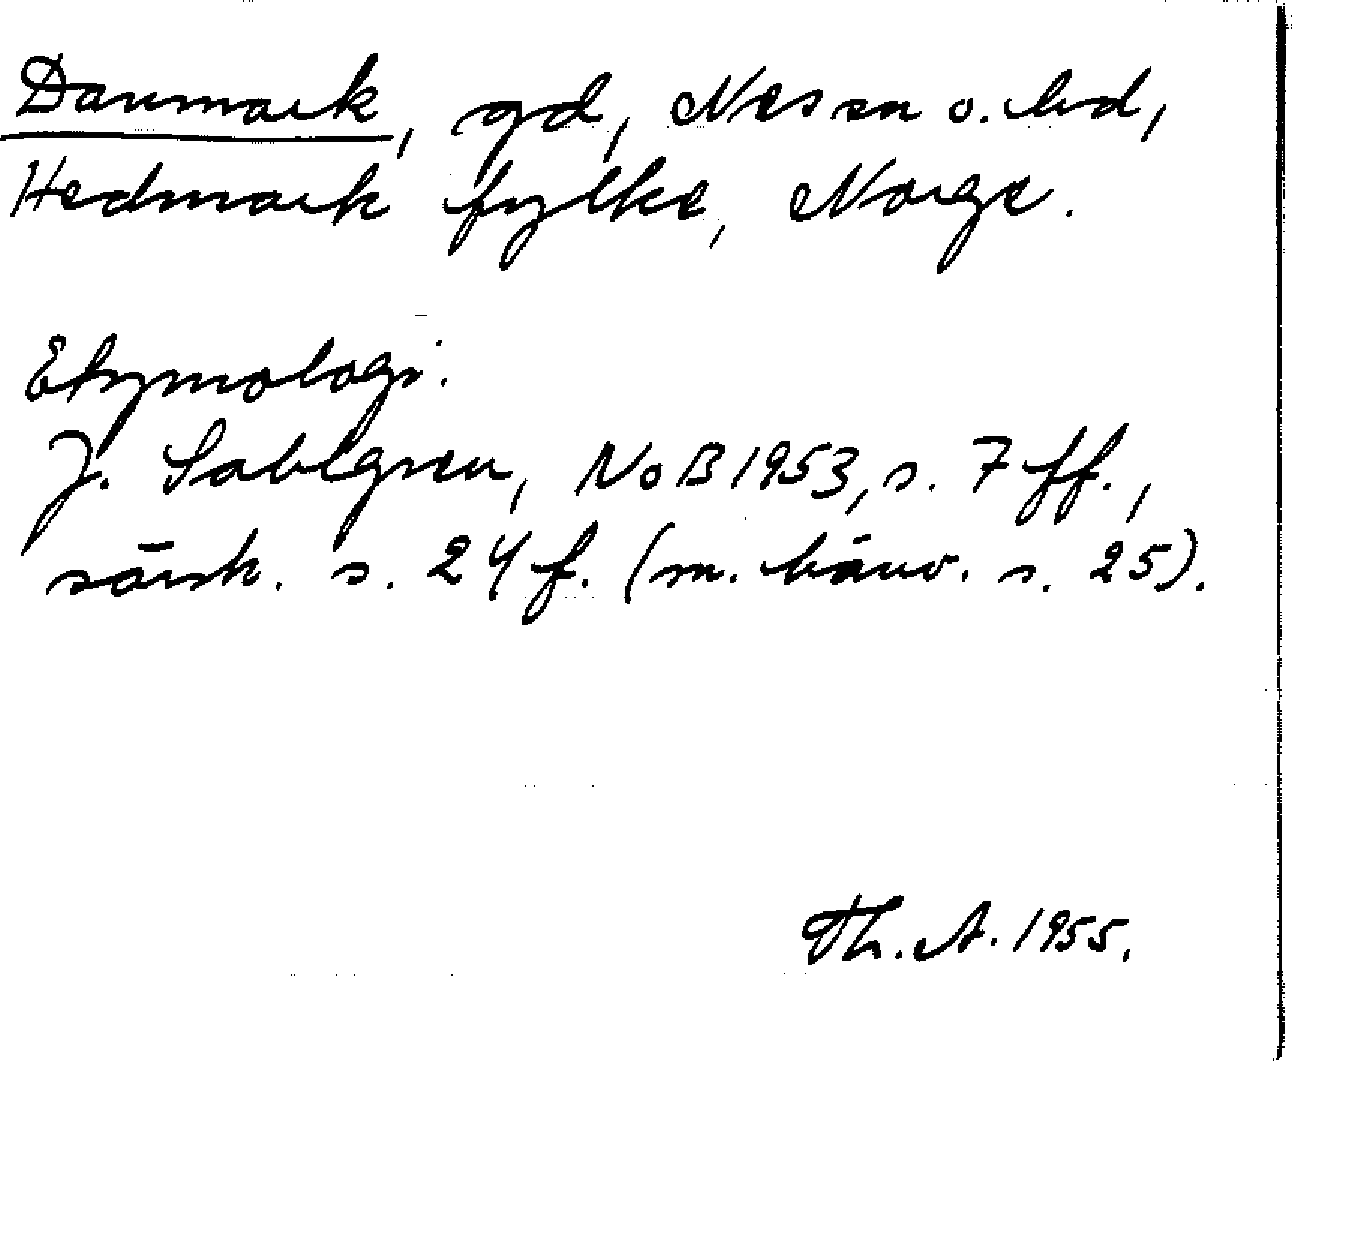 Danmark, gd, Nes sn o. hd,
Hedmark fylke, Norge.
Etymologi:
J. Sahlgren, NoB 1953, s. 7 ff.,
särsk. s. 24 f. (m. hänv. s. 25).
Th. A. 1955.